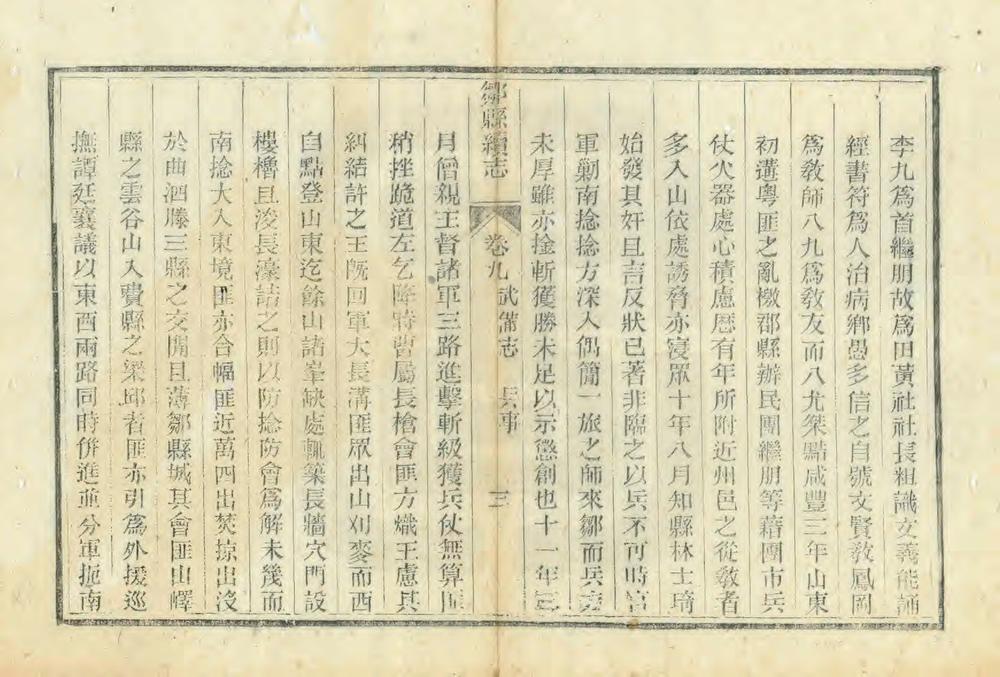 李九爲首繼朋故爲田黃社社長粗識文義能誦
經書符爲人治病鄉愚多信之自號文賢敎鳳岡
爲敎師八九爲敎友而八尤桀黠咸豐三年山東
初遘粵匪之亂檄郡縣辦民團繼朋等藉團市兵
仗火器處心積慮歷有年所附近州邑之從敎者
多入山依處誘脅亦寖眾十年八月知縣林士琦
始發其奸且言反狀已著非臨之以兵不可時官
軍剿南捻捻方深入偶簡一旅之師來鄒而兵
未厚雖亦擒斬獲勝未足以示懲創也十一年
鄒縣續志
卷九 武備志 兵事 三
月僧親王督諸軍三路進擊斬級獲兵仗無算匪
稍挫跪道左乞降時曹屬長槍會匪方熾王慮其
糾結許之王旣回軍大長溝匪眾出山刈麥而西
自點登山東迄餘山諸峯缺處輒築長牆穴門設
樓櫓且浚長濠詰之則以防捻防會爲解未幾而
南捻大入東境匪亦合幅匪近萬四出焚掠出沒
於曲泗滕三縣之交閒且薄鄒縣城其會匪由嶧
縣之雲谷山入費縣之梁邱者匪亦引爲外援巡
撫譚廷襄議以東西兩路同時併進並分軍扼南